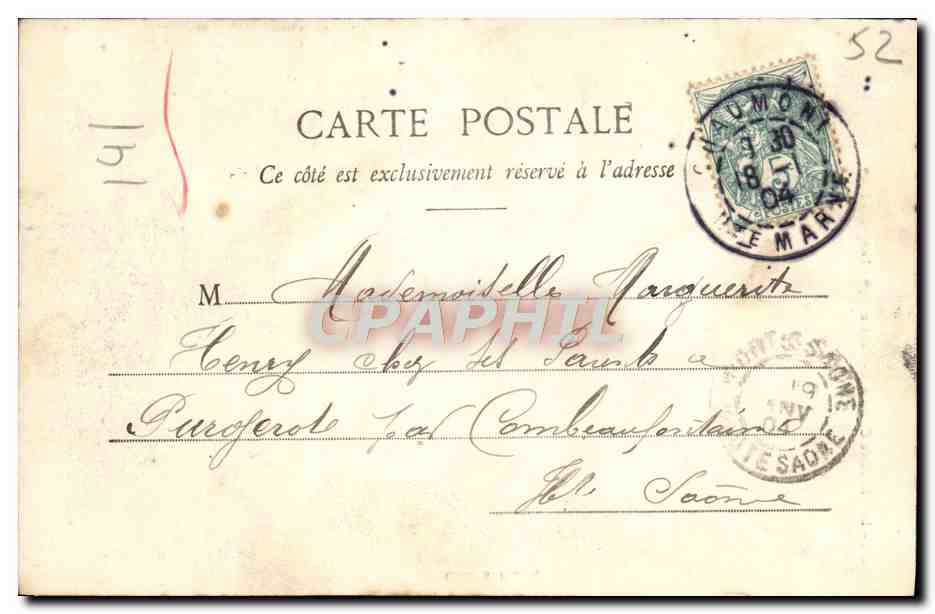 52
141
CARTE POSTALE
Ce côté est exclusivement réservé à l'adresse
CHAUMONT
9 30
8
04
HTE MARNE
5
POSTES
M Mademoiselle Marguerite
CPAPHIL
Henry chez ses Parents a
Purgerot par Combeaufontaine
Hte Saône
PORT S SAONE
9
JANV
04
HTE SAONE